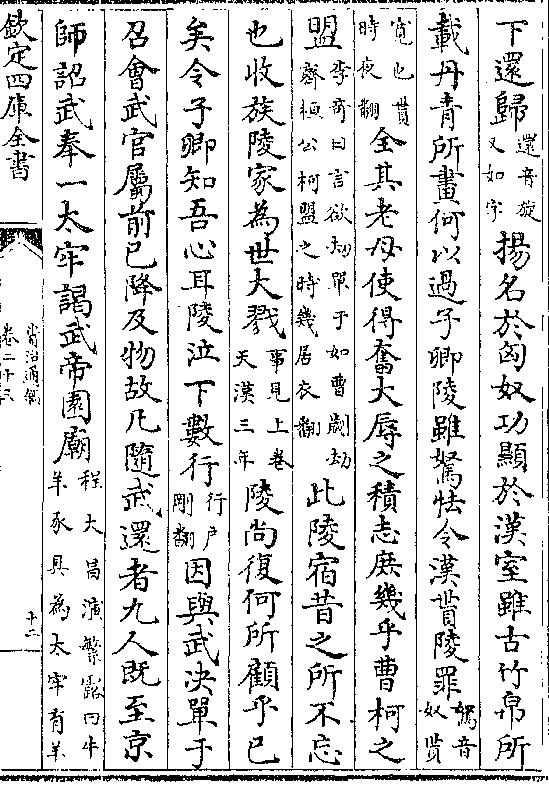 下還歸還音旋又如字揚名於匈奴功顯於漢室雖古竹帛所
載丹青所畫何以過子卿陵雖駑怯令漢貰陵罪駑音奴貰
寛也貰時夜翻全其老母使得奮大辱之積志庶幾乎曹柯之
盟李奇曰言欲劫單于如曹劌劫齊桓公柯盟之時幾居衣翻此陵宿昔之所不忘
也收族陵家為世大戮事見上卷天漢三年陵尚復何所顧乎已
矣令子卿知吾心耳陵泣下數行行户剛翻因與武決單于
召會武官屬前已降及物故凡隨武還者九人既至京
師詔武奉一太牢謁武帝園廟程大昌演繁露曰牛羊豕具為太牢有羊
欽定四庫全書
資治通鑑
卷二十三
十二